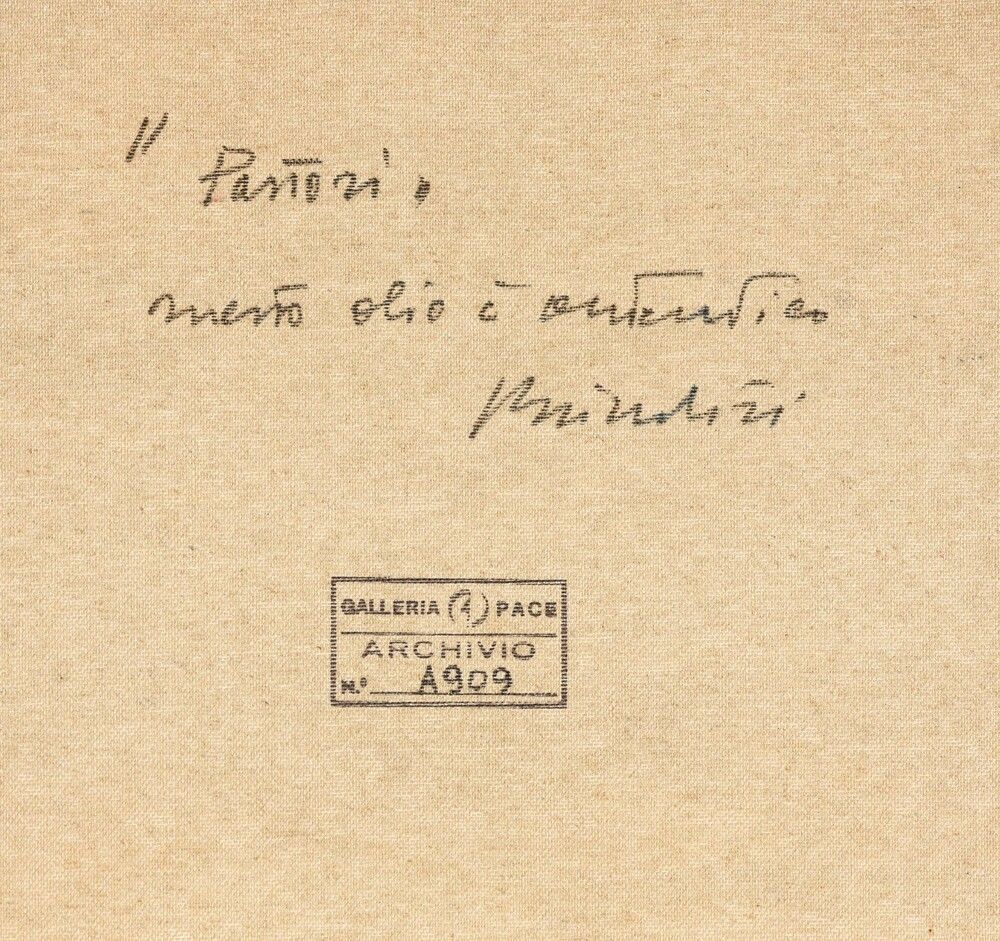 " Pastori "
questo olio è autentico
GALLERIA PACE
ARCHIVIO
N.º A909